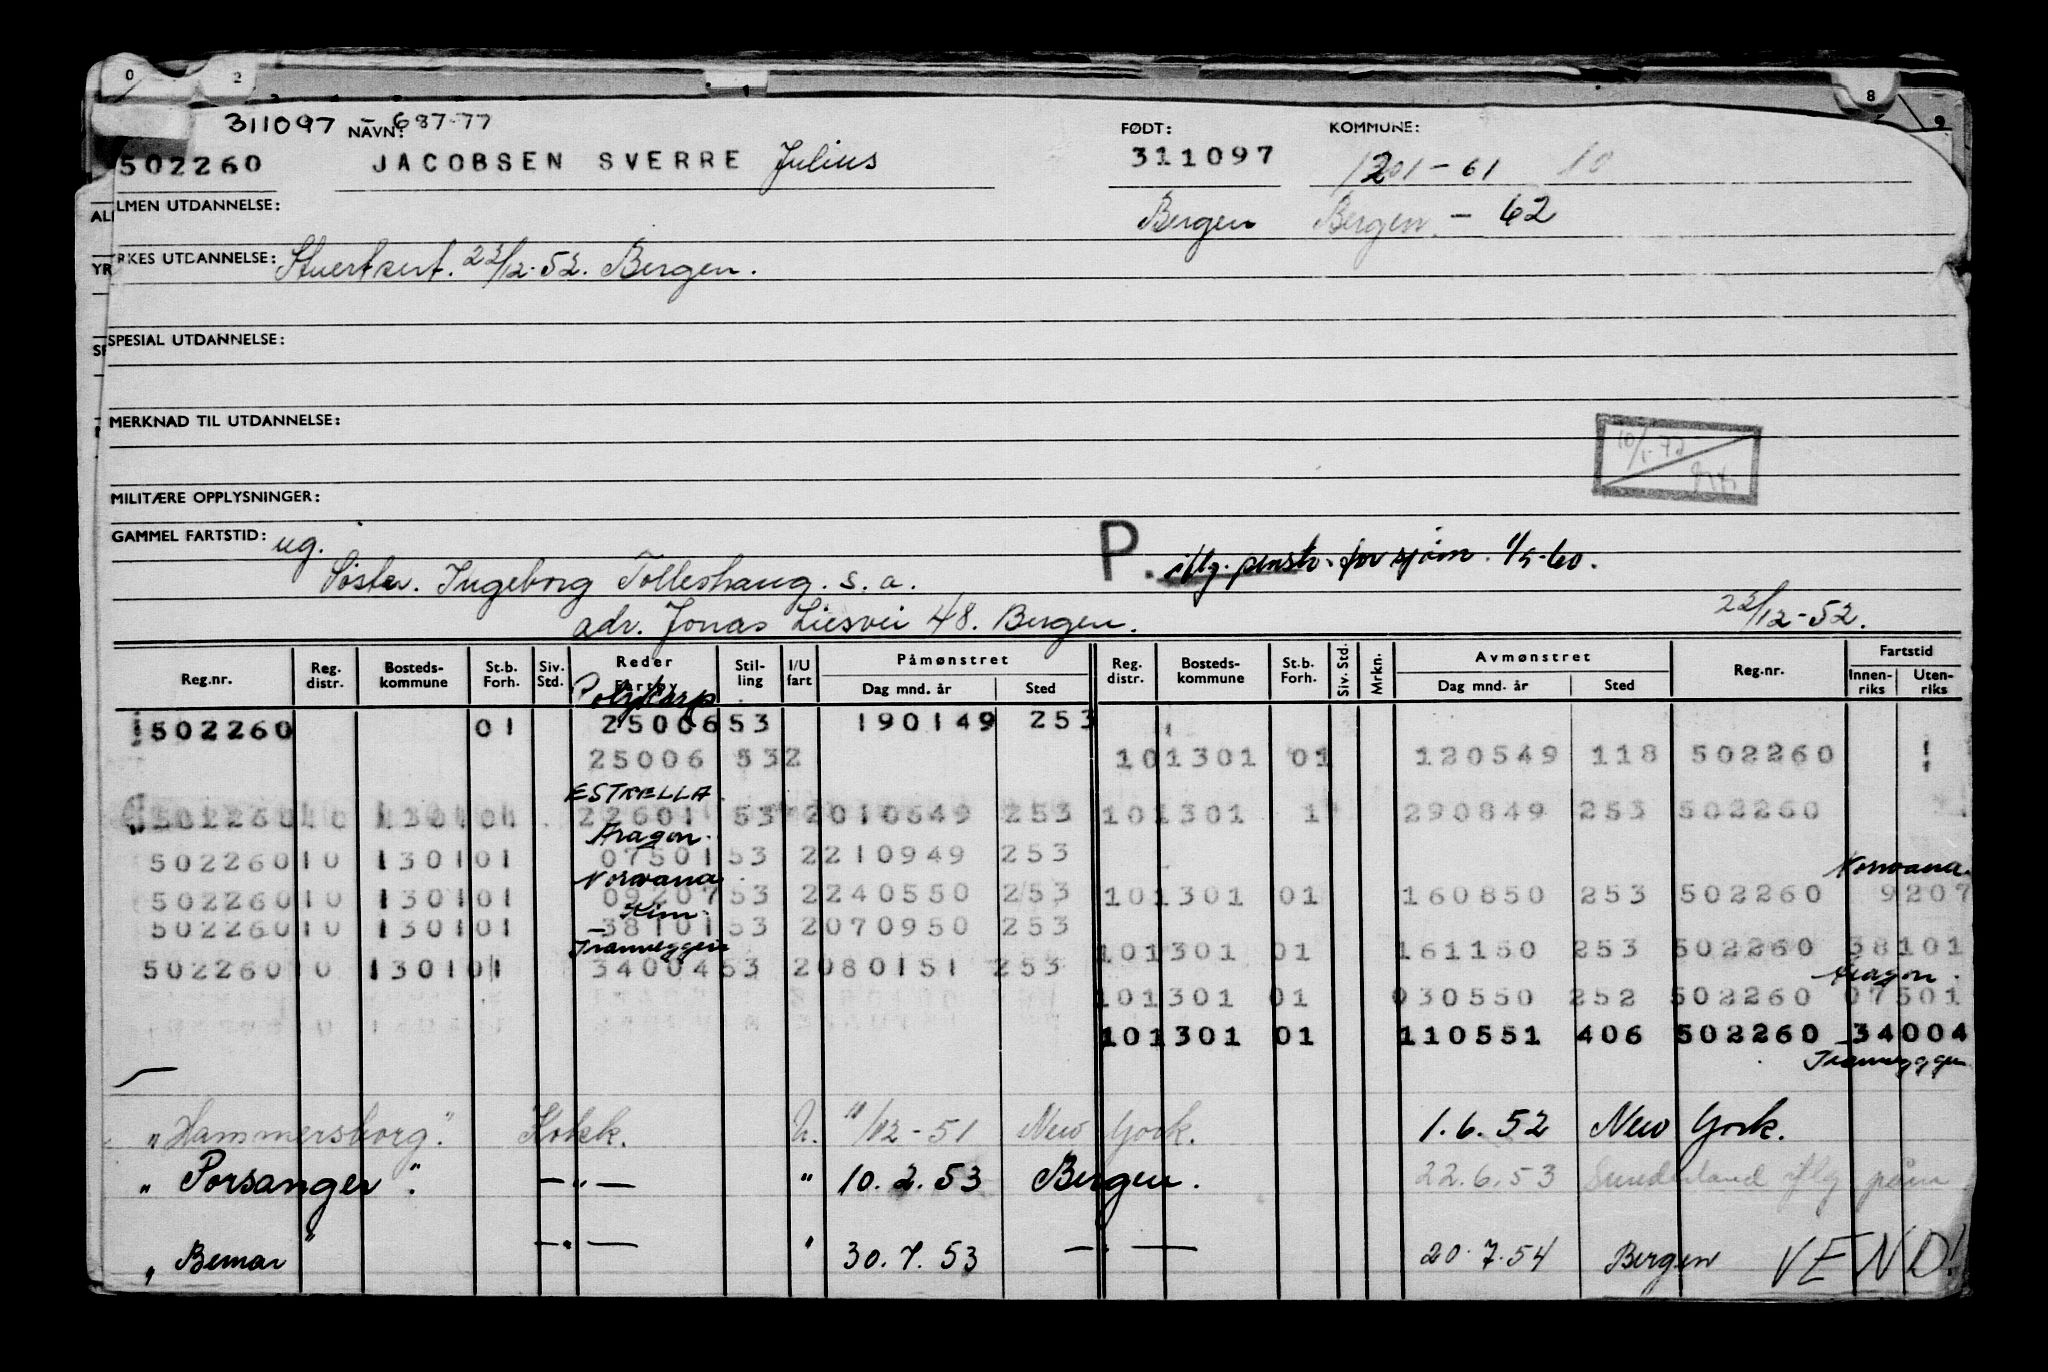 0 2 8 9
311097 - 687-77
NAVN: FØDT: KOMMUNE:
502260 JACOBSEN SVERRE Julius 311097 1201-61 10
ALMEN UTDANNELSE: Bergen Bergen - 62
YRKES UTDANNELSE: Stuertsert. 22/12-52. Bergen.
SPESIAL UTDANNELSE:
MERKNAD TIL UTDANNELSE:
MILITÆRE OPPLYSNINGER:
GAMMEL FARTSTID: ug. P. iflg. penstr. for sjøm. 1/5-60.
Søster. Ingeborg Tolleshaug. s. a.
adr. Jonas Liesvei 48. Bergen. 22/12-52.
Reg.nr. Reg. distr. Bosteds-kommune St.b. Forh. Siv. Std. Reder Fartøy Stil-ling I/U fart Påmønstret Dag mnd. år Sted Reg. distr. Bosteds-kommune St.b. Forh. Siv. Std. Mrkn. Avmønstret Dag mnd. år Sted Reg.nr. Fartstid Innen-riks Uten-riks
Polykarp
502260 01 25006 53 190149 253
25006 532 101301 01 120549 118 502260
ESTRELLA
502260 10 1301 01 22601 53 2 010649 253 101301 1 290849 253 502260
Aragon.
502260 10 1301 01 07501 53 2 210949 253
Norvana Norvana.
502260 10 1301 01 09207 53 2 240550 253 101301 01 160850 253 502260 9207
Kim.
502260 10 1301 01 38101 53 2 070950 253
101301 01 161150 253 502260 38101
Tranveggen
502260 10 1301 01 34004 53 2 080151 253
Aragon.
101301 01 030550 252 502260 07501
101301 01 110551 406 502260 34004
Tranveggen
"Hammersborg". Kokk. U. /12-51 New York. 1.6.52 New York.
"Porsanger". —"— " 10.2.53 Bergen. 22.6.53 Sunderland iflg påm
"Bemar" —"— " 30.7.53 —"— 20.7.54 Bergen VEND!